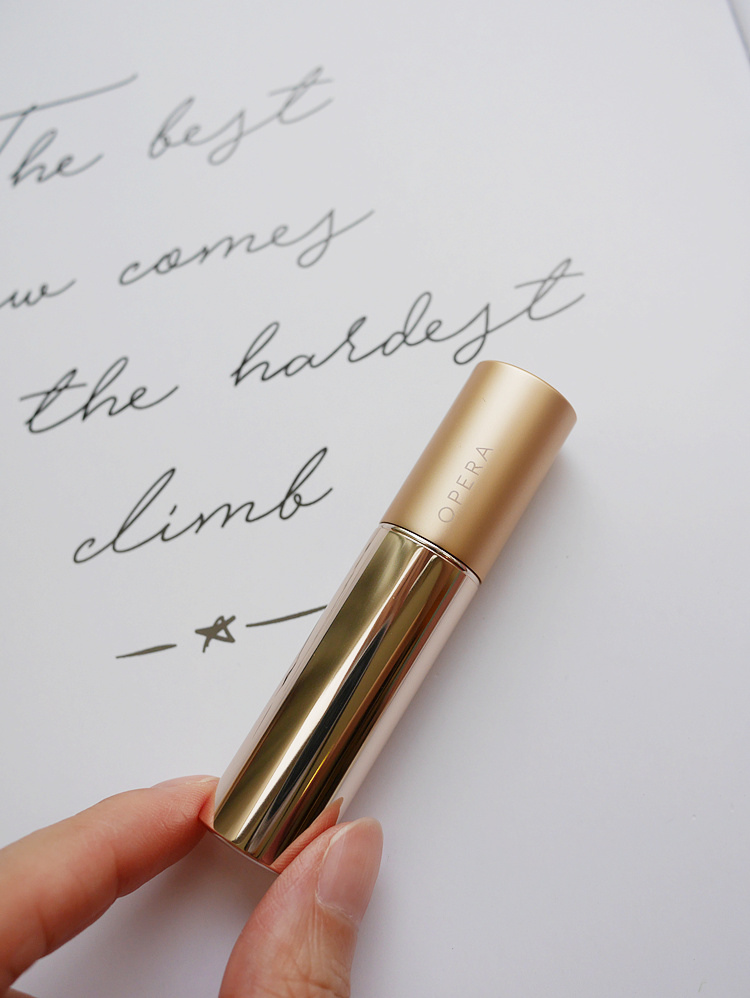 The best
comes
the hardest
climb
OPERA